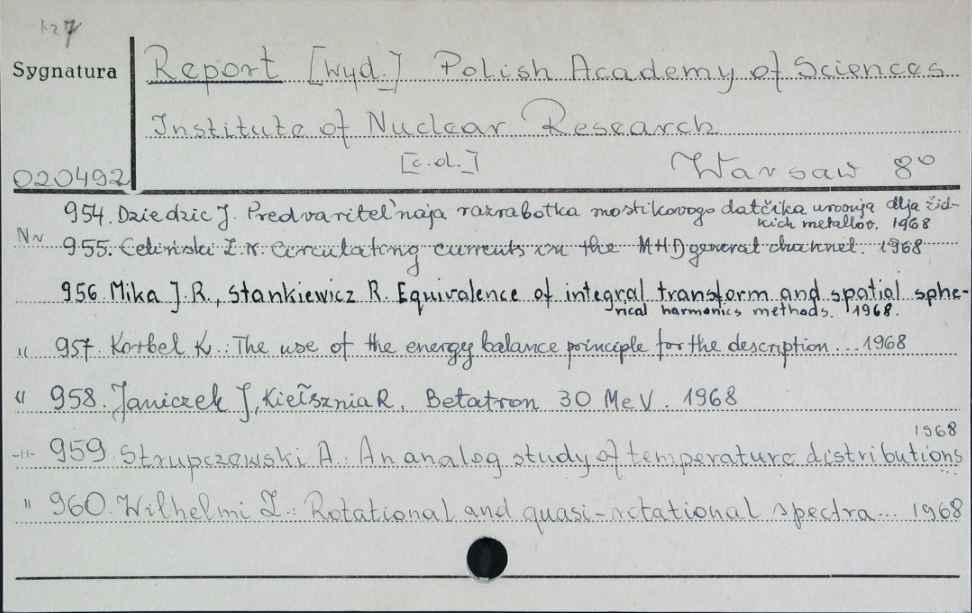 127
Sygnatura
Report [wyd.] Polish Academy of Sciences
Institute of Nuclear Research
[c.d.] Warsaw 8°
020492
954. Dziedzic J. Predvaritel'naja razrabotka mostikovogo datčika urovnja dlja žid-
kich metallov. 1968
Nr 955. Celiński Z.N. Circulatong currents in the MHD general channel. 1968
956. Mika J.R., Stankiewicz R. Equivalence of integral transform and spatial sphe-
rical harmonics methods. 1968.
" 957. Korbel K.: The use of the energy balance principle for the description ... 1968
" 958. Janiczek J, Kiełsznia R. Betatron 30 MeV. 1968
1968
-"- 959. Strupczewski A. An analog study of temperature distributions
" 960. Wilhelmi Z.: Rotational and quasi-rotational spectra... 1968